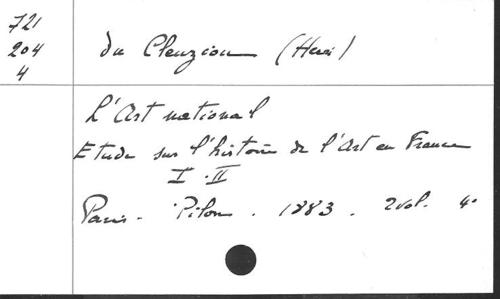 721
204
4
du Cleuziou (Henri)
L'Art national
Etude sur l'histoire de l'Art en France
I. II
Paris - Pilon. 1883. 2 vol. 4°